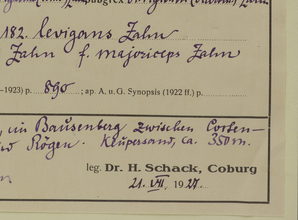 182. levigans Zahn
Zahn f. majoriceps Zahn
–1923) p. 890; ap. A. u. G. Synopsis (1922 ff.) p.
im Bausenberg zwischen Corten–
Rögen. Keupersand, ca. 350 m.
leg. Dr. H. Schack, Coburg
21. VII. 1927.